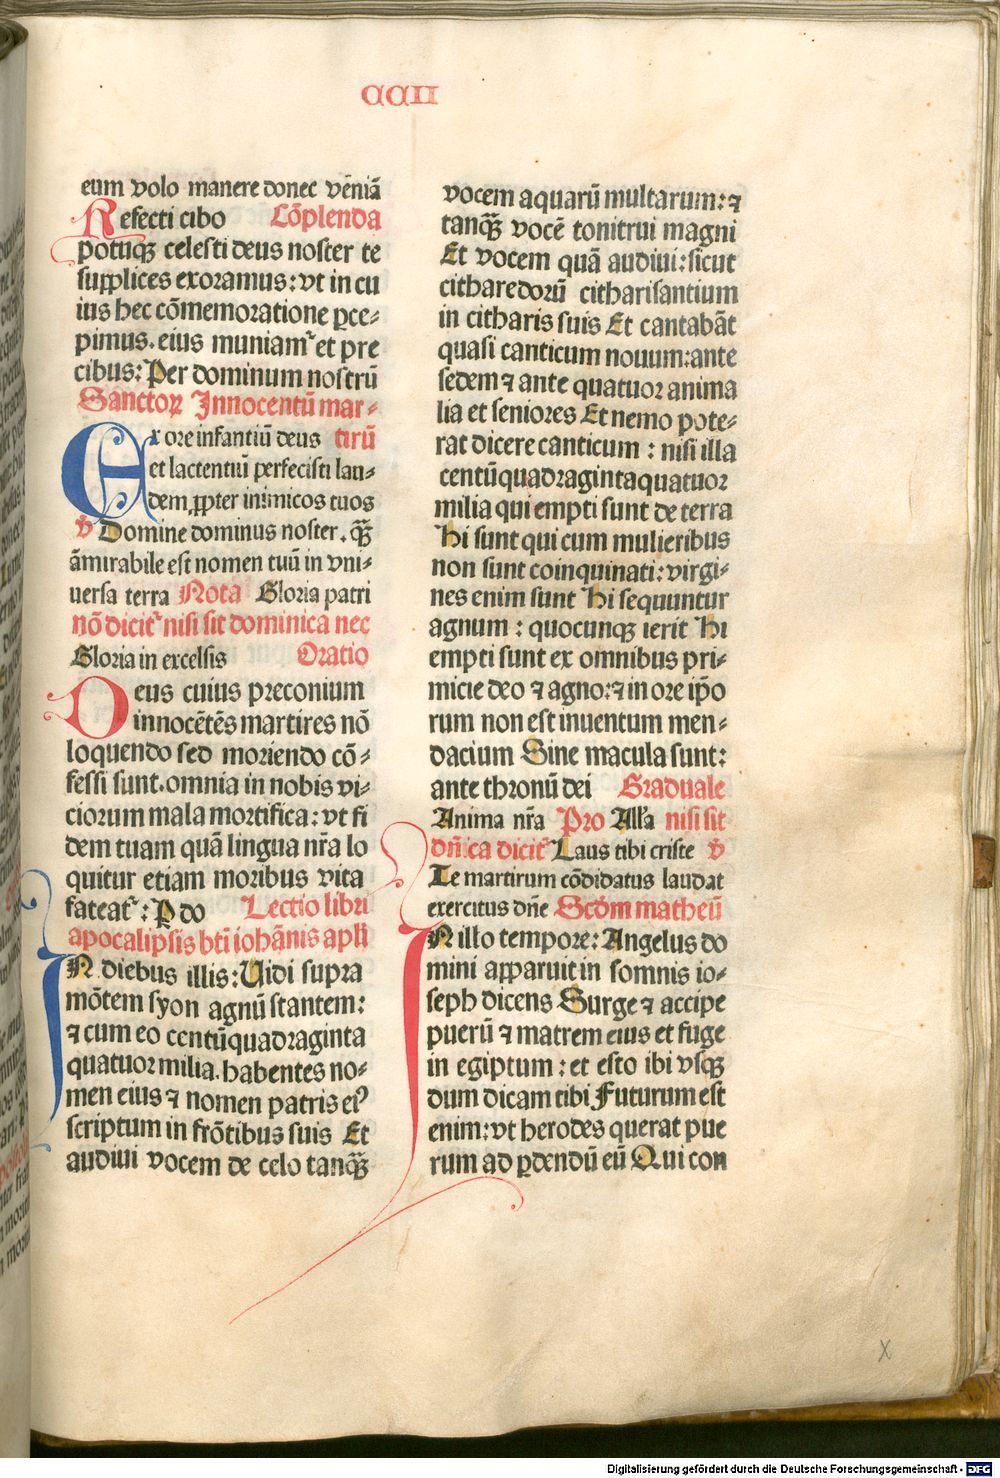 CCII
eum volo manere donec veniã
Refecti cibo Cõplenda
potuqꝫ celesti deus noster te
supplices exoramus: vt in cu
ius hec cõmemoratione ꝑce⸗
pimus. eius muniamᷣ et pre
cibus: Per dominum nostrũ
Sanctoꝝ Innocentũ mar⸗
Ex ore infantiũ deus tirũ
et lactentiũ perfecisti lau⸗
dem ꝓpter inimicos tuos
v̾ Domine dominus noster. qꝫ̃
ãmirabile est nomen tuũ in vni⸗
uersa terra Nota Gloria patri
nõ dicitᷣ nisi sit dominica nec
Gloria in excelsis Oratio
Deus cuius preconium
innocẽtẽs martires nõ
loquendo sed moriendo cõ⸗
fessi sunt. omnia in nobis vi⸗
ciorum mala mortifica: vt fi
dem tuam quã lingua nr̃a lo
quitur etiam moribus vita
fateatᷣ: Ꝑ do Lectio libri
apocalipsis bt̃i iohãnis apl̃i
IN diebus illis: Uidi supra
mõtem syon agnũ stantem:
⁊ cum eo centũquadraginta
quatuor milia. habentes no⸗
men eius ⁊ nomen patris eiꝰ
scriptum in frõtibus suis Et
audiui vocem de celo tanqꝫ̃
vocem aquarũ multarum: ⁊
tanqꝫ̃ vocẽ tonitrui magni
Et vocem quã audiui: sicut
citharedorũ citharisantium
in citharis suis Et cantabãt
quasi canticum nouum: ante
sedem ⁊ ante quatuor anima
lia et seniores Et nemo pote⸗
rat dicere canticum: nisi illa
centũquadragintaquatuor
milia qui empti sunt de terra
Hi sunt qui cum mulieribus
non sunt coinquinati: virgi⸗
nes enim sunt Hi sequuntur
agnum: quocunqꝫ ierit Hi
empti sunt ex omnibus pri⸗
micie deo ⁊ agno: ⁊ in ore ip̃o
rum non est inuentum men⸗
dacium Sine macula sunt:
ante thronũ dei Graduale
Anima nr̃a Pro All̃a nisi sit
dñica dicitᷣ Laus tibi criste v̾
Te martirum cõdidatus laudat
exercitus dñe Scd̃m matheũ
IN illo tempore: Angelus do
mini apparuit in somnis io⸗
seph dicens Surge ⁊ accipe
puerũ ⁊ matrem eius et fuge
in egiptum: et esto ibi vsqꝫ
dum dicam tibi Futurum est
enim: vt herodes querat pue
rum ad ꝑdendũ eũ Qui con
X
Digitalisierung gefördert durch die Deutsche Forschungsgemeinschaft - DFG